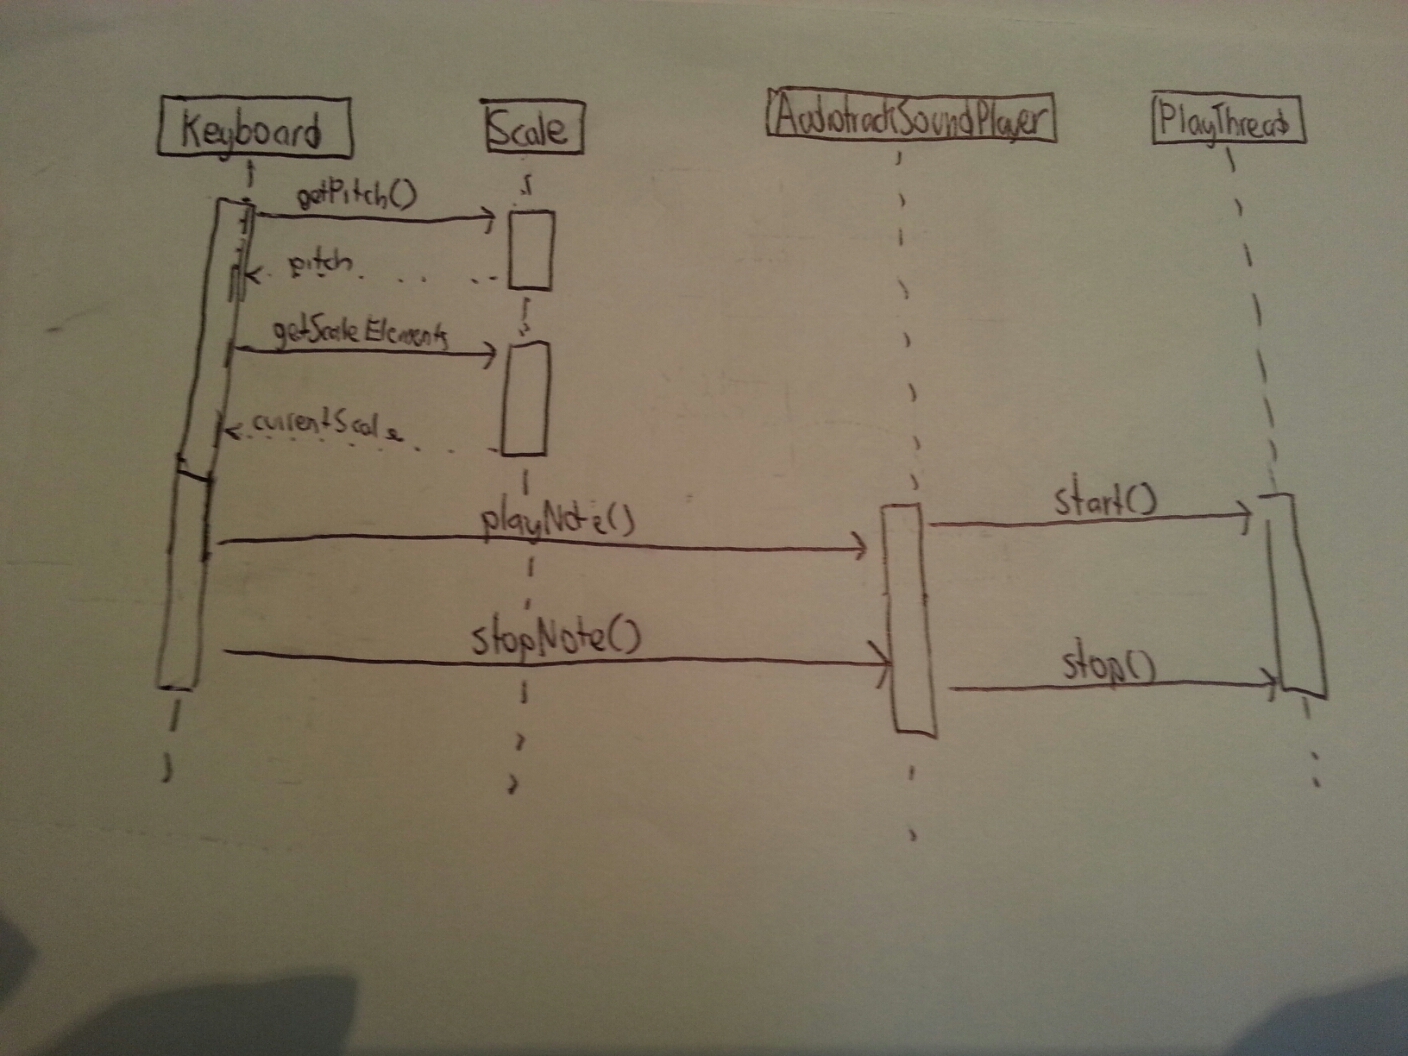 Keyboard
Scale
AudiotrackSoundPlayer
PlayThread
getPitch()
pitch
getScaleElements
currentScale
playNote()
start()
stopNote()
stop()